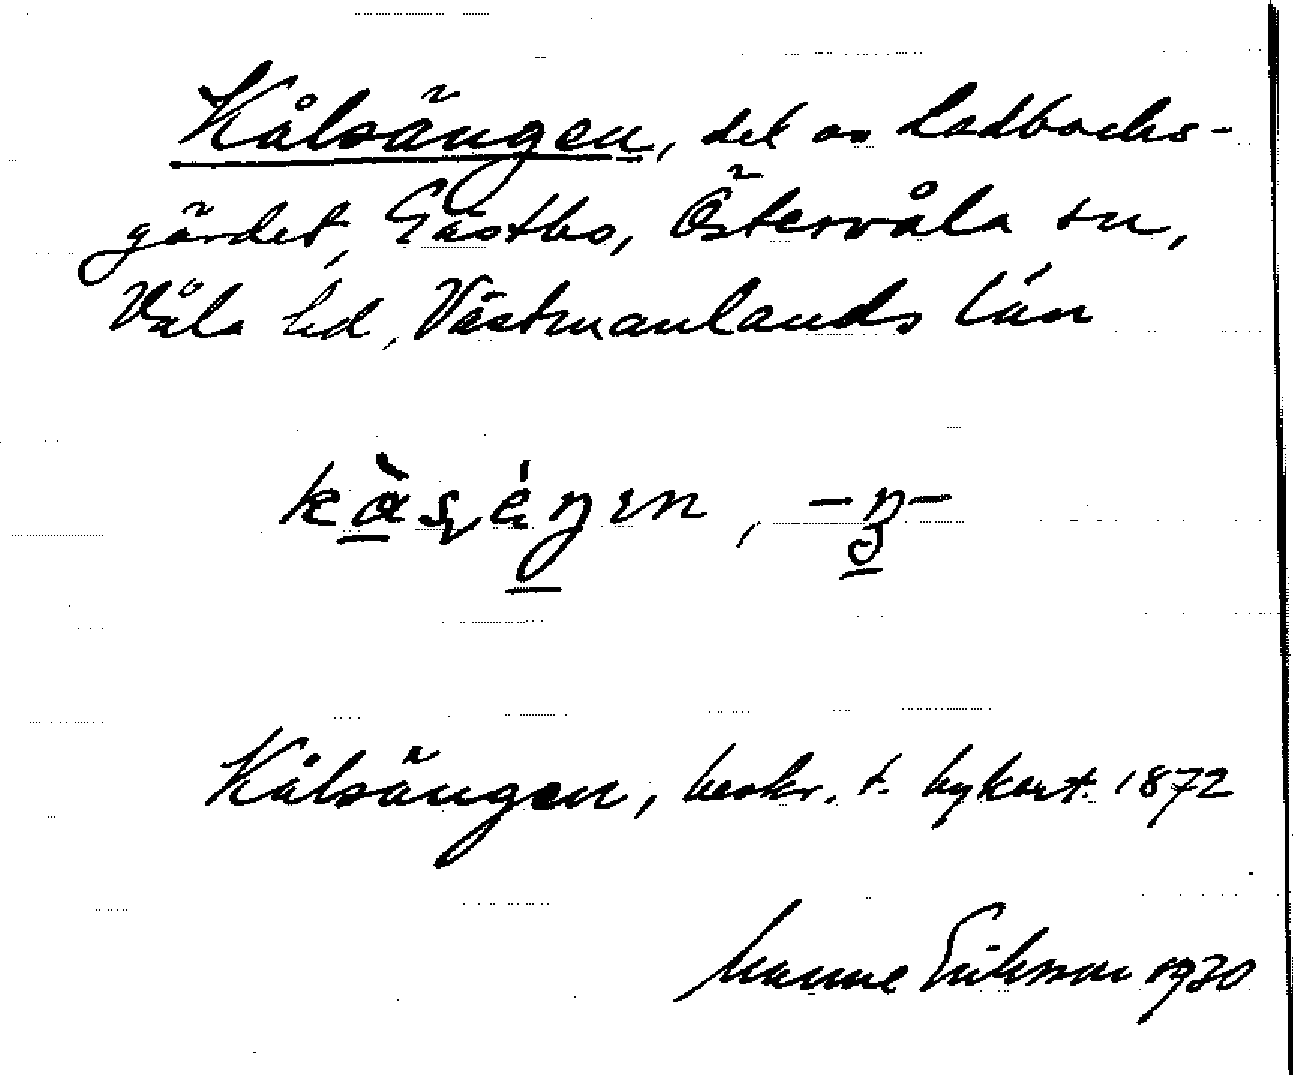 Kålsängen, del av Ladbacks-
gärdet, Gästbo, Östervåla sn,
Våla hd, Västmanlands län
Kålsängen, beskr. t. bykart. 1872
Manne Eriksson 1930